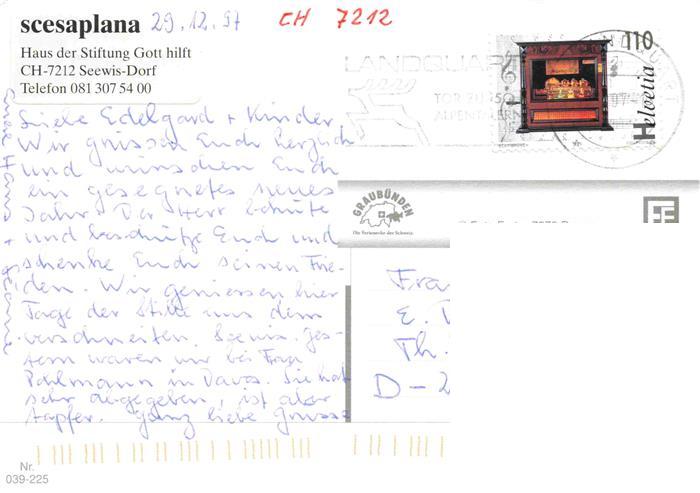 scesaplana 29.12.97 CH 7212
Haus der Stiftung Gott hilft
CH-7212 Seewis-Dorf
Telefon 081 307 54 00
LANDQUART
TOR ZU 150
ALPENTÄLERN
110
Helvetia
GRAUBÜNDEN
Die Ferienecke der Schweiz.
Liebe Edelgard + Kinder,
Wir grüssen Euch herzlich
und wünschen Euch
ein gesegnetes neues
Jahr. Der Herr behüte
und beschütze Euch und
schenke Euch seinen Frie-
den. Wir geniessen hier
Tage der Stille im
verschneiten Seewis. Ges-
tern waren wir bei Frau
Pohlmann in Davos. Sie hat
sehr abgegeben, ist aber
tapfer. Ganz liebe Grüsse
Fra
E.
Th.
D-2
Nr.
039-225